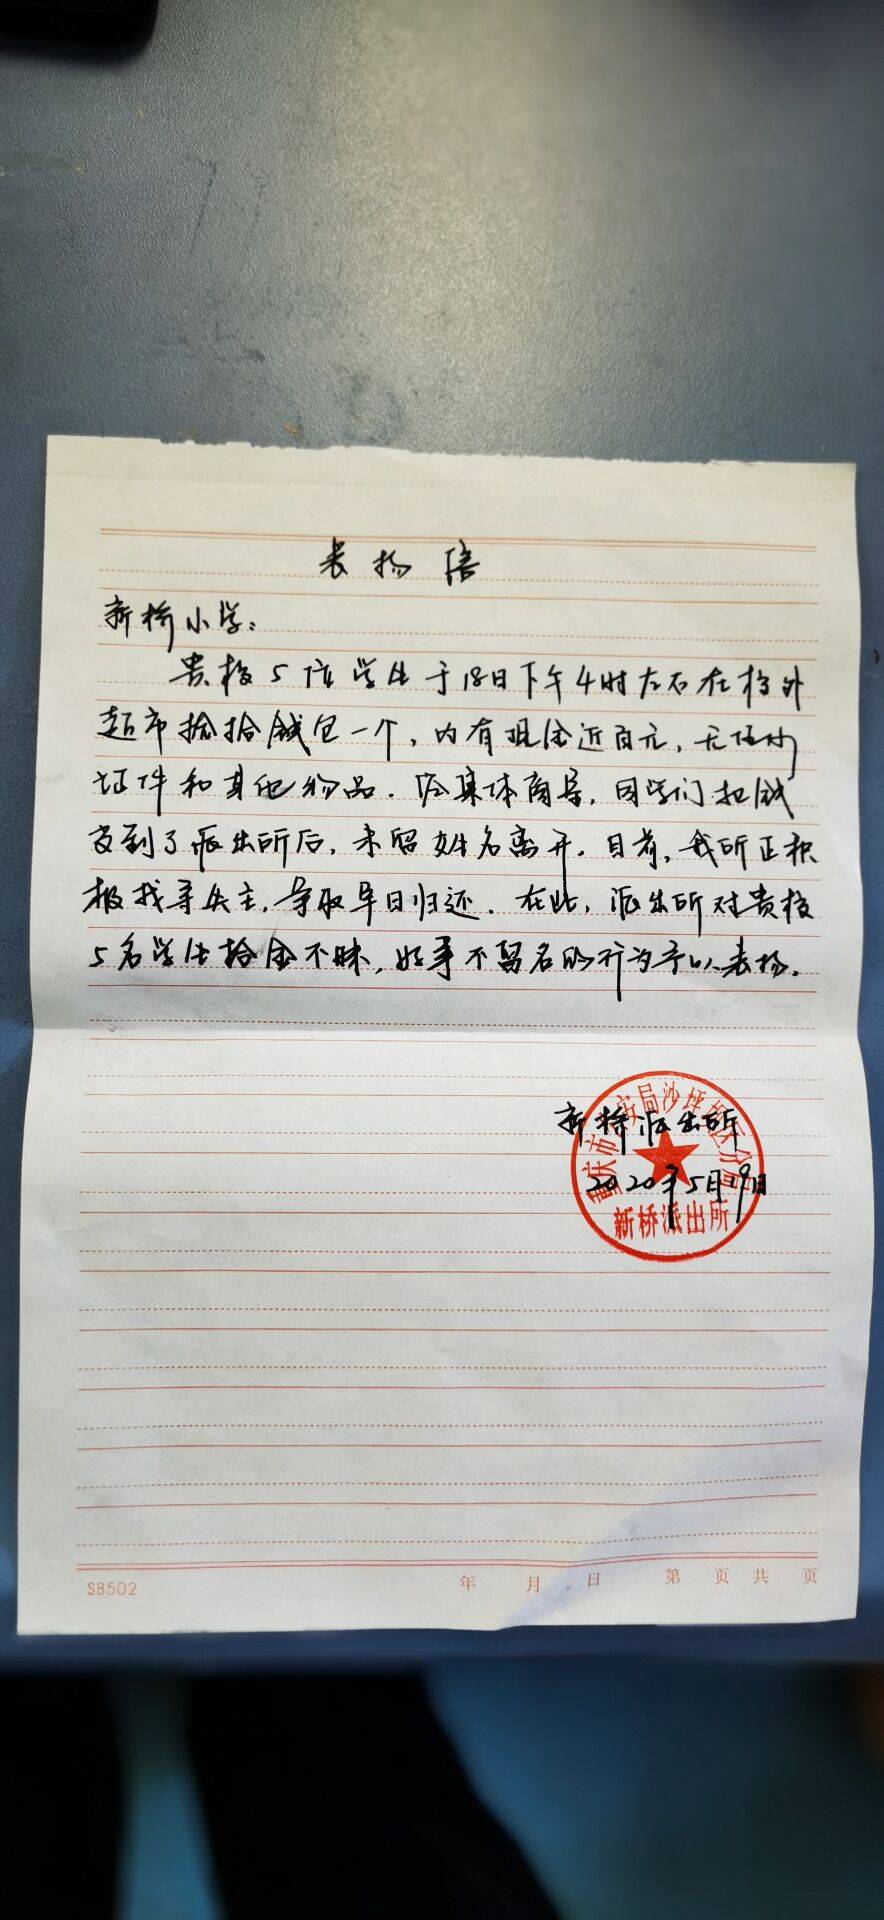 表扬信
新桥小学：
贵校5位学生于18日下午4时左右在校外
超市捡拾钱包一个，内有现金近百元，无任何
证件和其他物品。经集体商量，同学们把钱
交到了派出所后，未留姓名离开。目前，我所正积
极找寻失主，争取早日归还。在此，派出所对贵校
5名学生拾金不昧，好事不留名的行为予以表扬。
新桥派出所
2020年5月19日
重庆市公安局沙坪坝区分局
新桥派出所
SB502 年 月 日 第 页 共 页